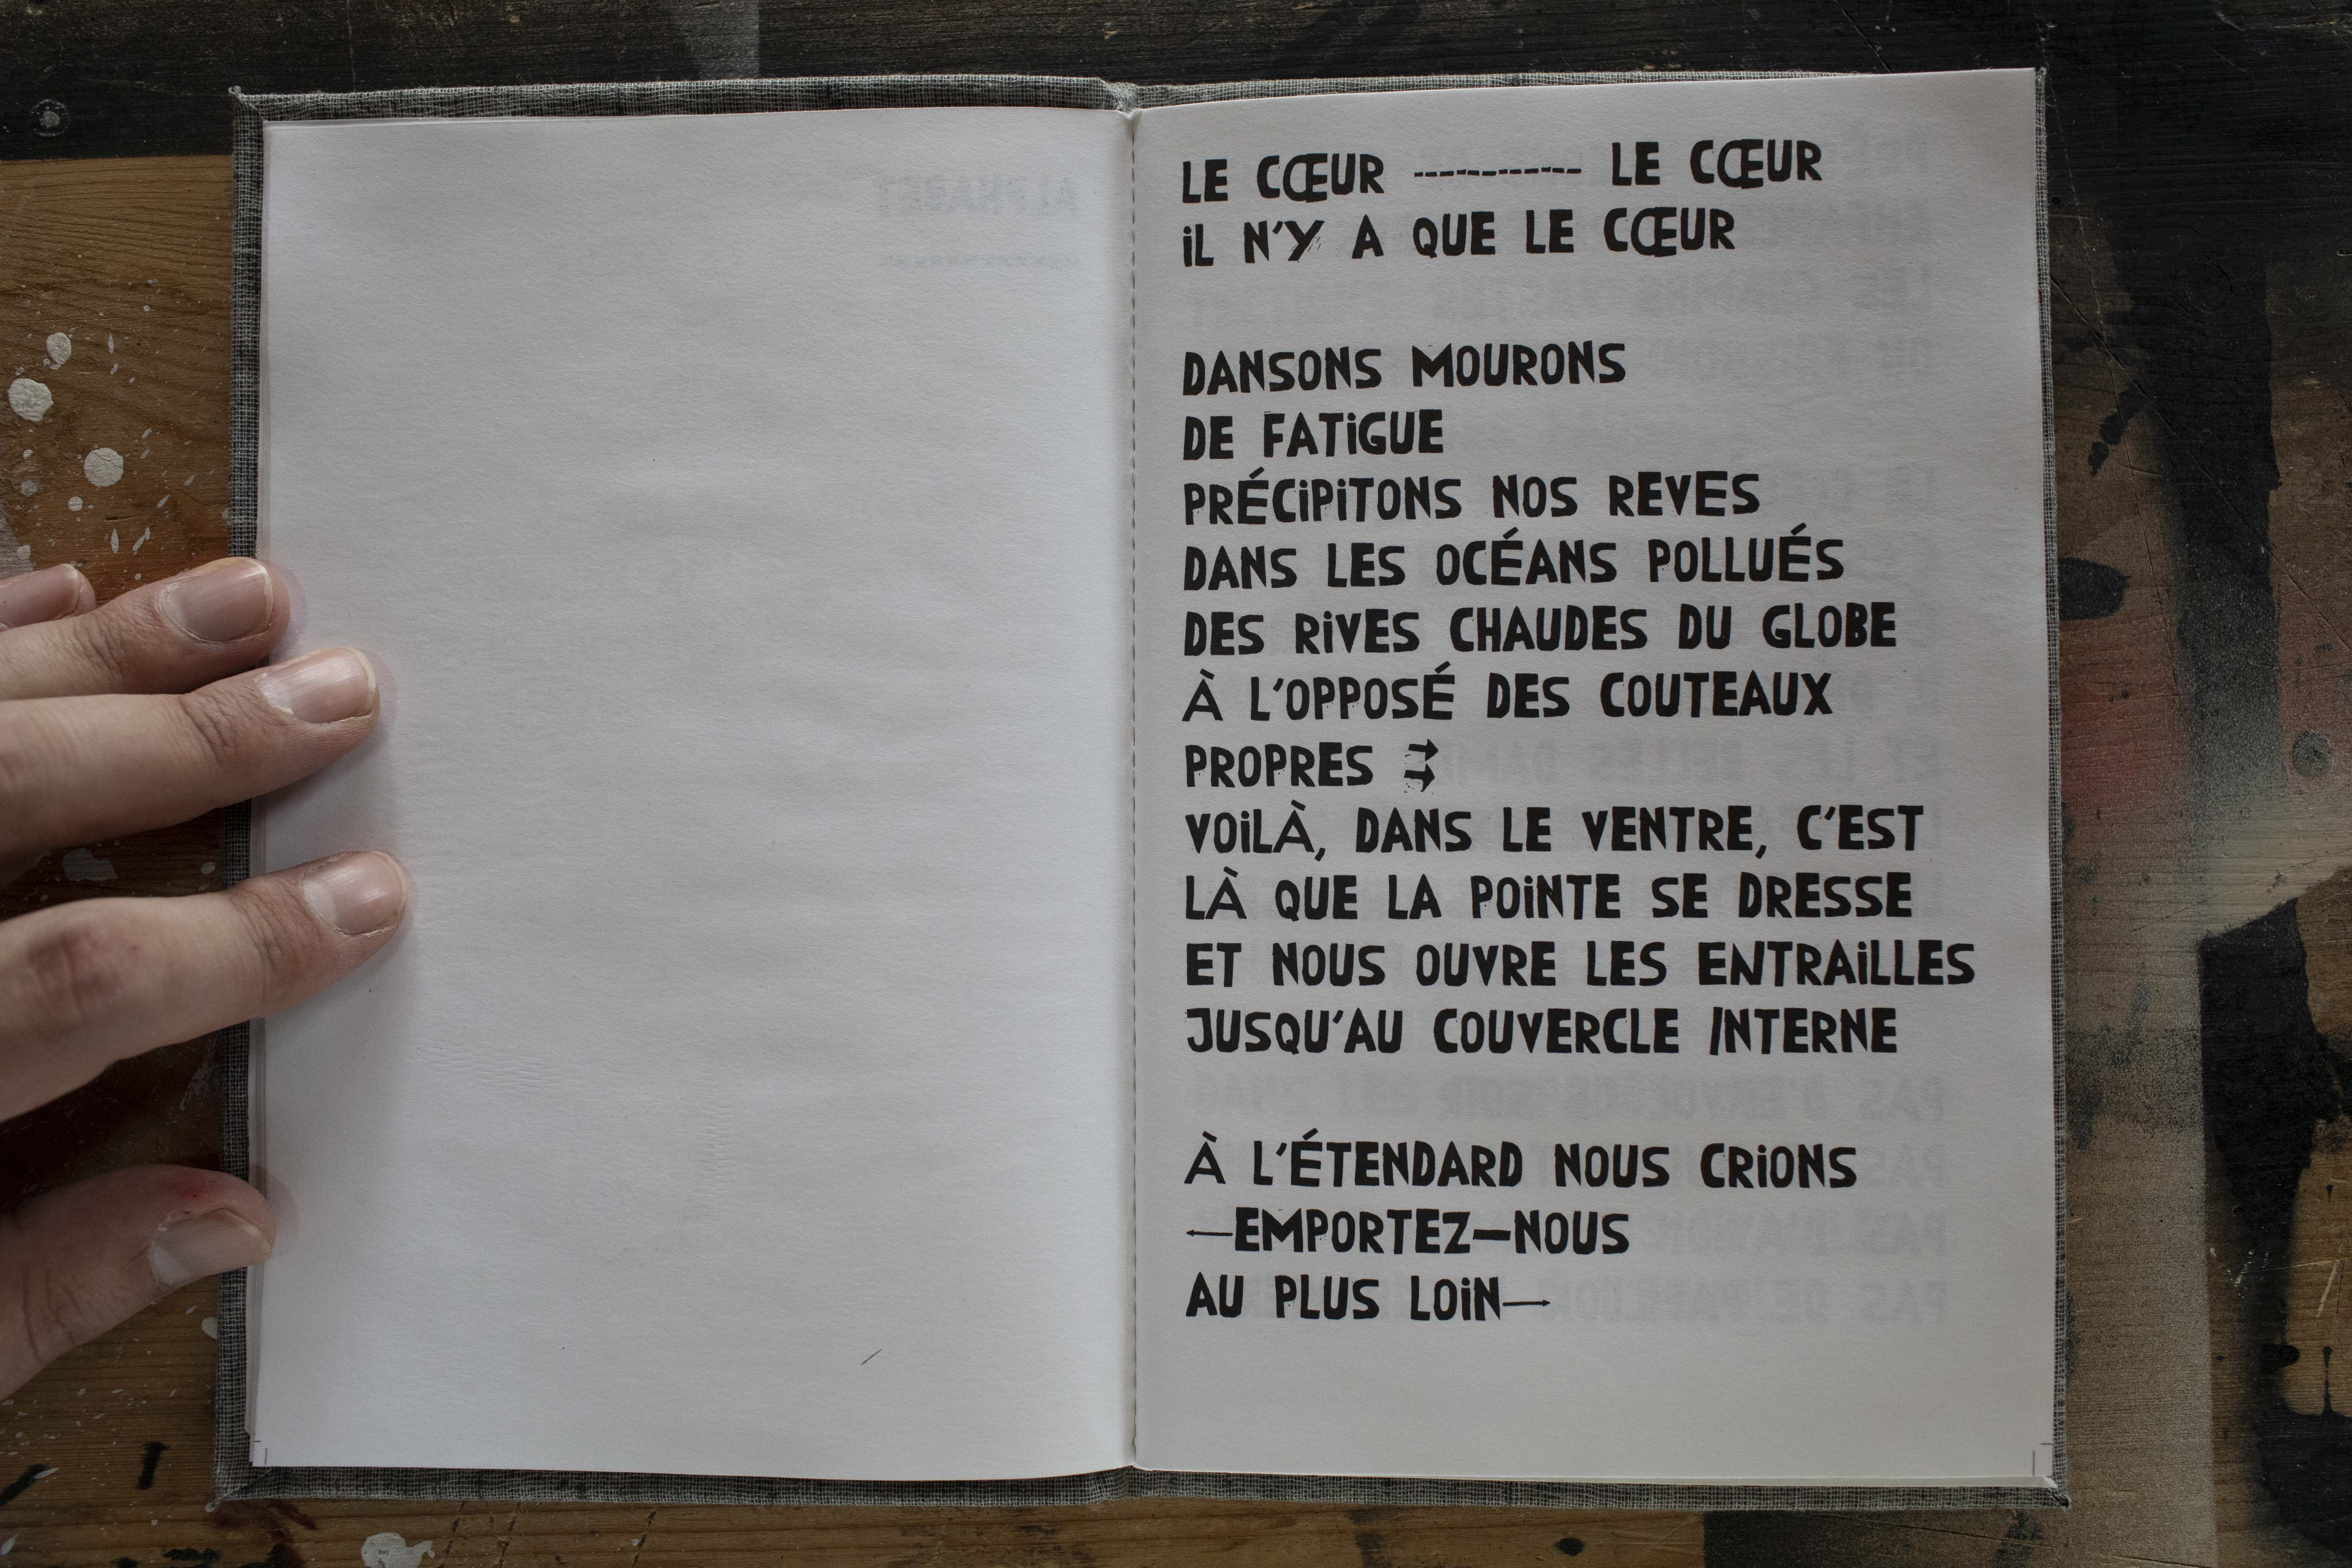 LE CŒUR ----------- LE CŒUR
iL N'Y A QUE LE CŒUR
DANSONS MOURONS
DE FATiGUE
PRÉCiPiTONS NOS REVES
DANS LES OCÉANS POLLUÉS
DES RiVES CHAUDES DU GLOBE
À L'OPPOSÉ DES COUTEAUX
PROPRES ⇉
VOiLÀ, DANS LE VENTRE, C'EST
LÀ QUE LA POiNTE SE DRESSE
ET NOUS OUVRE LES ENTRAiLLES
JUSQU'AU COUVERCLE INTERNE
À L'ÉTENDARD NOUS CRiONS
←EMPORTEZ—NOUS
AU PLUS LOiN→
ALPHABET